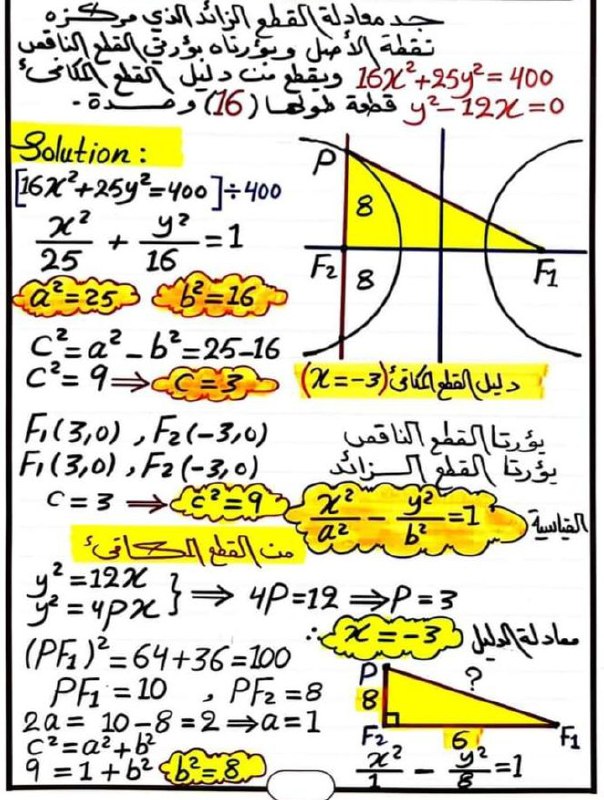 جد معادلة القطع الزائد الذي مركزه
نقطة الأصل وبؤرتاه بؤرتي القطع الناقص
16x²+25y²=400 ويقطع من دليل القطع المكافئ
y²-12x=0 قطعة طولها (16) وحدة.
Solution:
[16x²+25y²=400]÷400
x²/25 + y²/16 = 1
a²=25 b²=16
C²=a²-b²=25-16
C²=9 ⇒ C=3
P
8
F₂ 8 F₁
دليل القطع المكافئ (x=-3)
F₁(3,0), F₂(-3,0) بؤرتا القطع الناقص
F₁(3,0), F₂(-3,0) بؤرتا القطع الزائد
C=3 ⇒ C²=9
x²/a² - y²/b² = 1 القياسية
من القطع المكافئ
y²=12x
y²=4Px } ⇒ 4P=12 ⇒ P=3
∴ x=-3 معادلة الدليل
(PF₁)²=64+36=100
PF₁=10 , PF₂=8
2a=10-8=2 ⇒ a=1
C²=a²+b²
9=1+b² b²=8
P ?
8
F₂ 6 F₁
x²/1 - y²/8 = 1